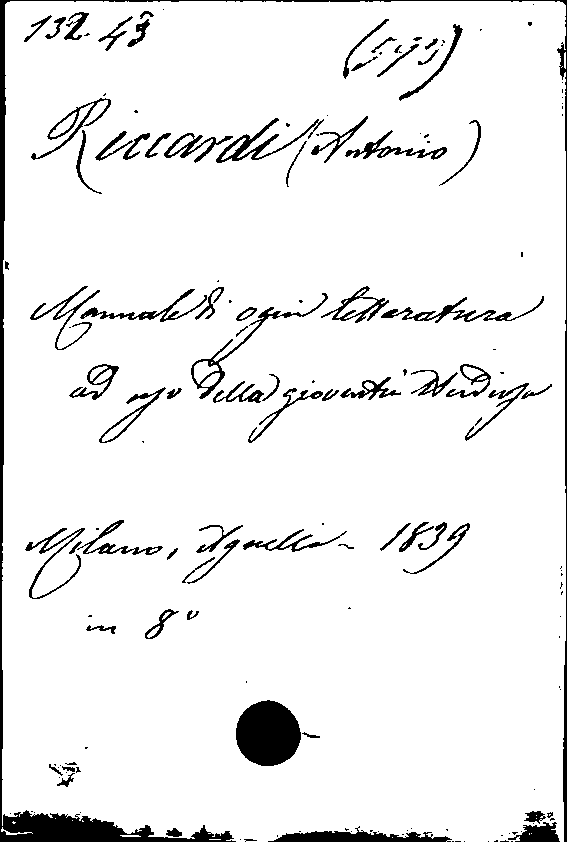 132 43
(593)
Riccardi (Antonio)
Manuale di ogni letteratura
ad uso della gioventù studiosa
Milano, Agnelli - 1839
in 8°